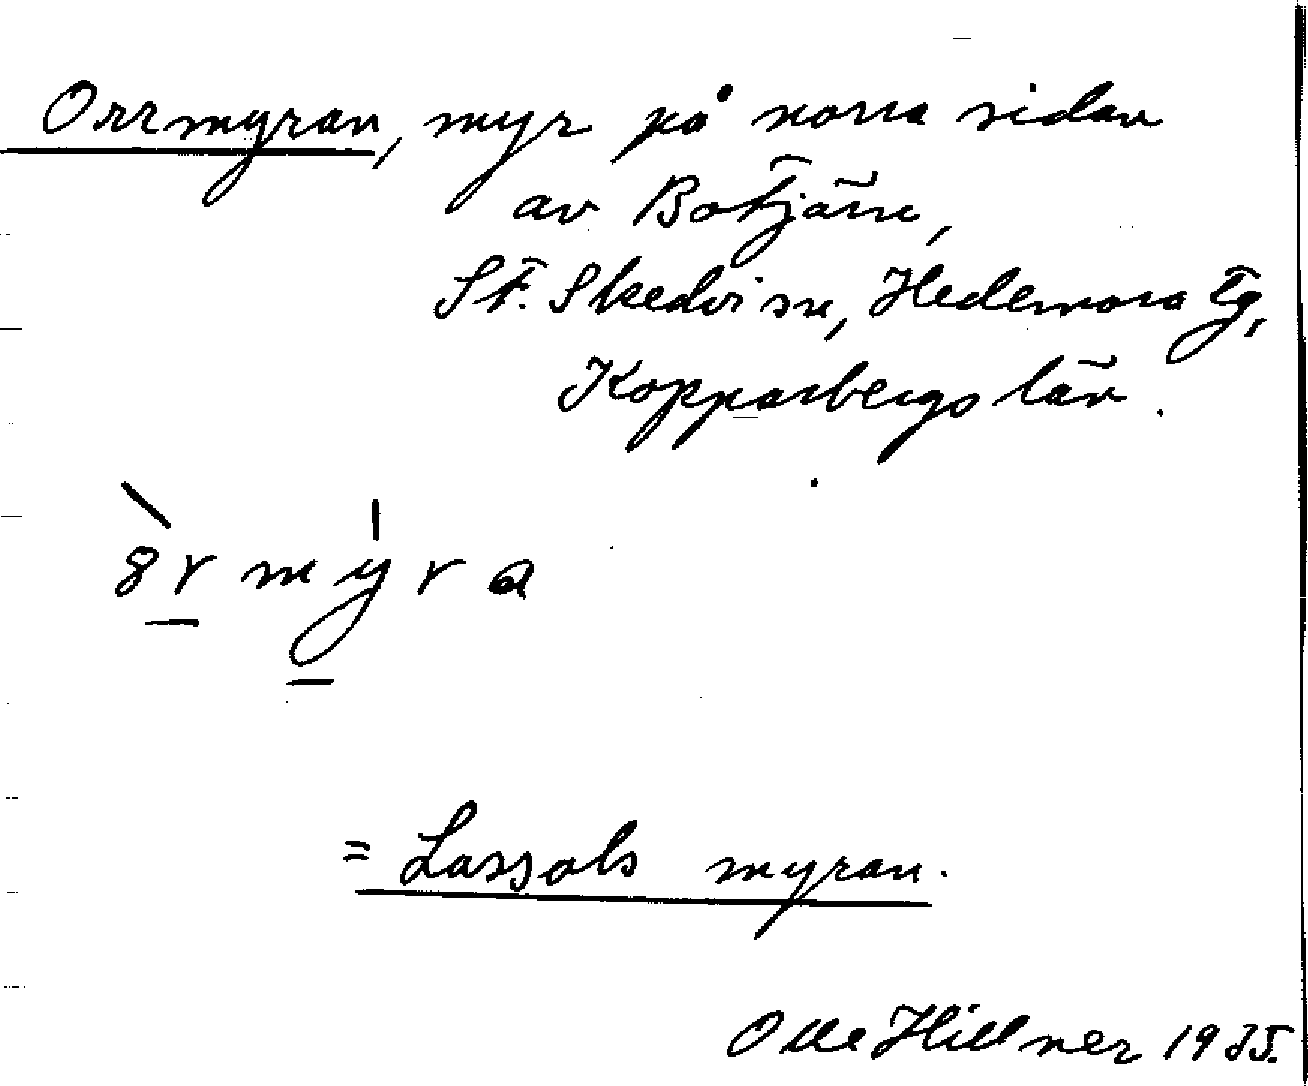 Orrmyran, myr på norra sidan
av Botjärn,
St. Skedvi sn, Hedemora tg,
Kopparbergs län.
= Lassols myran.
Olle Hillner 1935.